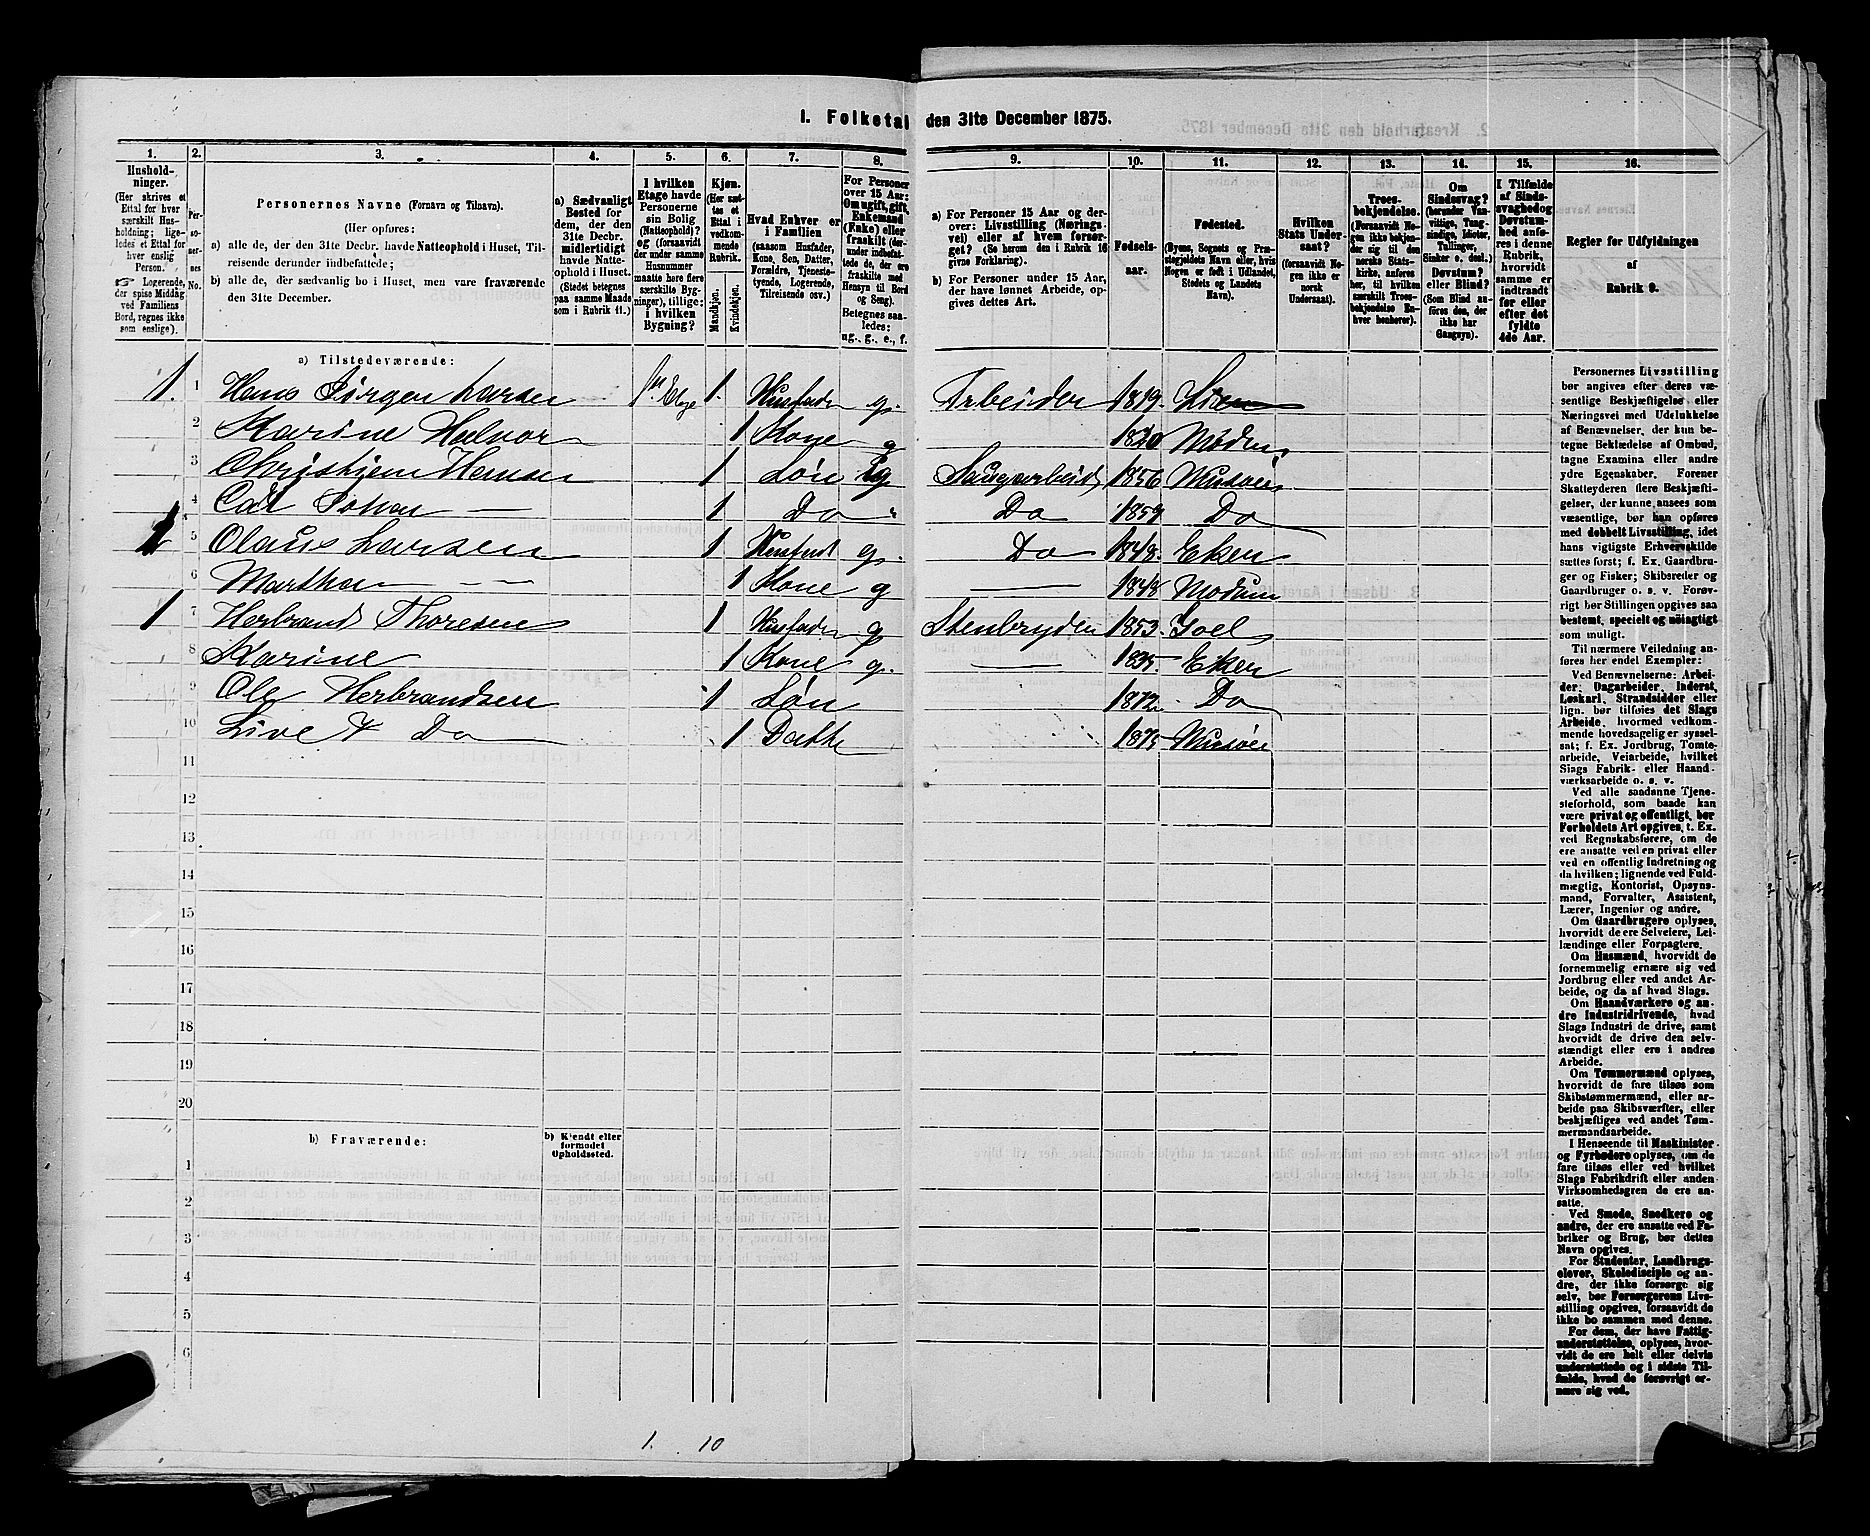 1. Folketal den 31te December 1875.
1. 2. 3. 4. 5. 6. 7. 8. 9. 10. 11. 12. 13. 14. 15. 16.
Hushold-
ninger.
(Her skrives et
Ettal for hver
særskilt Hus-
holdning; lige-
ledes et Ettal for
hver enslig
Person.
Logerende,
der spise Middag
ved Familiens
Bord, regnes ikke
som enslige).
Per-
so-
ner-
nes
No.
Personernes Navne (Fornavn og Tilnavn).
(Her opføres:
a) alle de, der den 31te Decbr. havde Natteophold i Huset, Til-
reisende derunder indbefattede;
b) alle de, der sædvanlig bo i Huset, men vare fraværende
den 31te December.
a) Sædvanligt
Bosted for
dem, der den
31te Decbr.
midlertidigt
havde Natte-
ophold i Huset.
(Stedet betegnes
paa samme Maade
som i Rubrik 11.)
I hvilken
Etage havde
Personerne
sin Bolig
(Natteophold)?
og (forsaavidt
der under samme
Husnummer
maatte høre flere
særskilte Byg-
ninger), tillige:
i hvilken
Bygning?
Kjøn.
(Her sæt-
tes et
Ettal i
vedkom-
mende
Rubrik.
Mandkjøn.
Kvindekjøn.
Hvad Enhver er
i Familien
(saasom Husfader,
Kone, Søn, Datter,
Forældre, Tjeneste-
tyende, Logerende,
Tilreisende osv.)
For Personer
over 15 Aar:
Om ugift, gift,
Enkemand
(Enke) eller
fraskilt (der-
under indbefat-
tede de, der ere
fraskilte med
Hensyn til Bord
og Seng).
Betegnes saa-
ledes:
ug., g., e., f.
a) For Personer 15 Aar og der-
over: Livsstilling (Nærings-
vei) eller af hvem forsør-
get? (Se herom den i Rubrik 16
givne Forklaring).
b) For Personer under 15 Aar,
der have lønnet Arbeide, op-
gives dettes Art.
Fødsels-
aar.
Fødested.
(Byens, Sognets og Præ-
stegjeldets Navn eller, hvis
Nogen er født i Udlandet,
Stedets og Landets
Navn).
Hvilken
Stats Under-
saat?
(forsaavidt No-
gen ikke er
norsk
Undersaat).
Troes-
bekjendelse.
(Forsaavidt No-
gen ikke bekjen-
der sig til den
norske Stats-
kirke, anføres
her, til hvilken
særskilt Troes-
bekjendelse En-
hver henhører).
Om
Sindssvag?
(herunder Van-
vittige, Tung-
sindige, Idioter,
Tullinger,
Sinker o. desl.)
Døvstum?
eller Blind?
(Som Blind an-
føres den, der
ikke har
Gangsyn).
I Tilfælde
af Sinds-
svaghed og
Døvstum-
hed anfø-
res i denne
Rubrik,
hvorvidt
samme er
indtraadt
før eller
efter det
fyldte
4de Aar.
Regler for Udfyldningen
af
Rubrik 9.
a) Tilstedeværende:
1. 1 Hans Jørgen Larsen 1ste Etage 1. Husfader g. Arbeider 1819. Lier
2 Karine Halvor 1 Kone g 1820 Modum
3 Christian Hansen 1 Søn ug Saugarbeid. 1856 Musøen
4 Carl Johan — 1 Do " Do 1859 Do
5 Olaus Larsen 1 Husfad. g. Do 1848. Eker
6 Martha — — 1 Kone g — 1848 Modum
1 7 Herbrand Thoresen 1 Husfader g Stenbryder 1853. Goel
8 Karine 1 Kone g. — 1835. Eker
9 Ole Herbrandsen 1 Søn 1872. Do
10 Live Do 1 Datter 1875 Musøen
11
12
13
14
15
16
17
18
19
20
b) Fraværende:
b) Kjendt eller
formodet
Opholdssted.
1
2
3
4
5
6
1. 10
Personernes Livsstilling
bør angives efter deres væ-
sentlige Beskjæftigelse eller
Næringsvei med Udelukkelse
af Benævnelser, der kun be-
tegne Beklædelse af Ombud,
tagne Examina eller andre
ydre Egenskaber. Forener
Skatteyderen flere Beskjæfti-
gelser, der kunne ansees som
væsentlige, bør han opføres
med dobbelt Livsstilling, idet
hans vigtigste Erhvervskilde
sættes først; f. Ex. Gaardbru-
ger og Fisker; Skibsreder og
Gaardbruger o. s. v. Forøv-
rigt bør Stillingen opgives saa
bestemt, specielt og nøiagtigt
som muligt.
Til nærmere Veiledning an-
føres her endel Exempler:
Ved Benævnelserne: Arbei-
der, Dagarbeider, Inderst,
Løskarl, Strandsidder eller
lign. bør tilføies det Slags
Arbeide, hvormed vedkom-
mende hovedsagelig er syssel-
sat; f. Ex. Jordbrug, Tomte-
arbeide, Veiarbeide, hvilket
Slags Fabrik- eller Haand-
værksarbeide o. s. v.
Ved alle saadanne Tjene-
steforhold, som baade kan
være privat og offentligt, bør
Forholdets Art opgives, t. Ex.
ved Regnskabsførere, om de
ere ansatte ved en privat eller
ved en offentlig Indretning og
da hvilken; lignende ved Fuld-
mægtig, Kontorist, Opsyns-
mand, Forvalter, Assistent,
Lærer, Ingeniør og andre.
Om Gaardbrugere oplyses,
hvorvidt de ere Selveiere, Lei-
lændinge eller Forpagtere.
Om Husmænd, hvorvidt de
fornemmelig ernære sig ved
Jordbrug eller ved andet Ar-
beide, og da af hvad Slags.
Om Haandværkere og an-
dre Industridrivende, hvad
Slags Industri de drive, samt
hvorvidt de drive den selv-
stændigt eller ere i andres
Arbeide.
Om Tømmermænd oplyses,
hvorvidt de fare tilsøs som
Skibstømmermænd, eller ar-
beide paa Skibsværfter, eller
beskjæftiges ved andet Tøm-
mermandsarbeide.
I Henseende til Maskinister
og Fyrbødere oplyses, om de
fare tilsøs eller ved hvilket
Slags Fabrikdrift eller anden
Virksomhedsgren de ere an-
satte.
Ved Smede, Snedkere og
andre, der ere ansatte ved Fa-
briker og Brug, bør dettes
Navn opgives.
For Studenter, Landbrugs-
elever, Skoledisciple og an-
dre, der ikke forsørge sig
selv, bør Forsørgerens Livs-
stilling opgives, forsaavidt de
ikke bo sammen med denne.
For dem, der have Fattig-
understøttelse, oplyses, hvor-
vidt de ere helt eller delvis
understøttede og i sidste Til-
fælde, hvad de forøvrigt er-
nære sig ved.